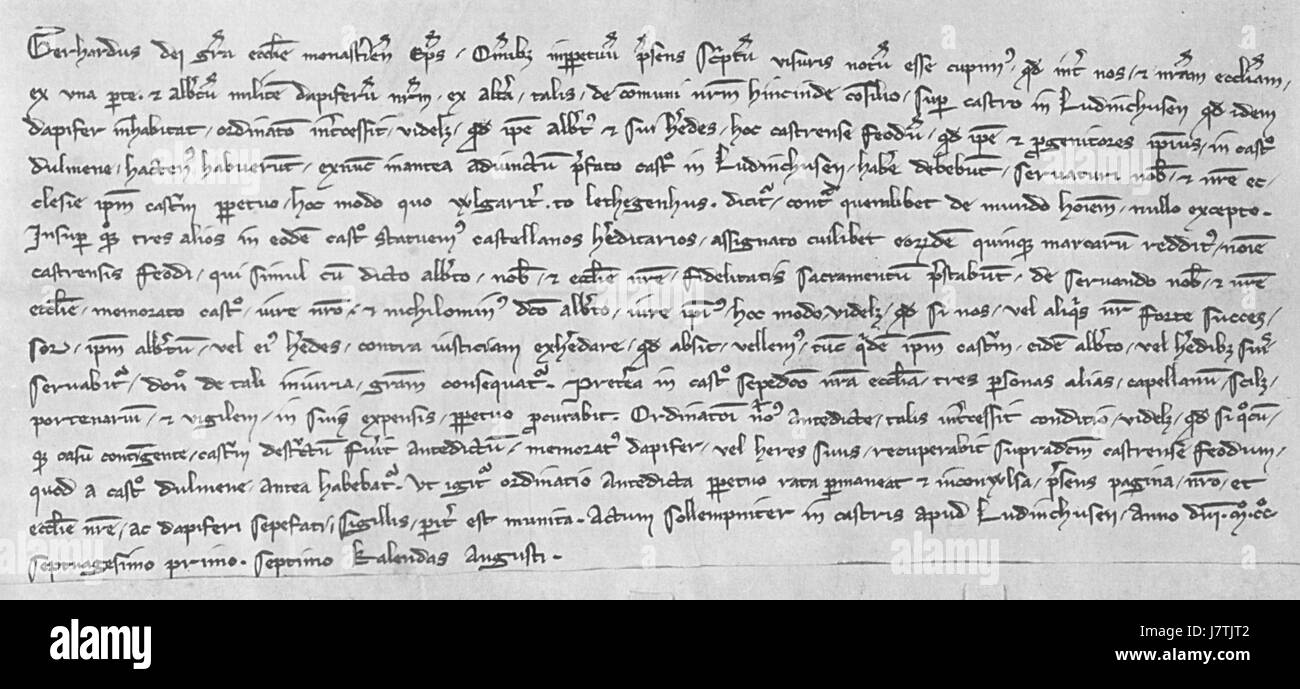 Gerhardus dei gr̄a ecclīe monasteriēn Ep̄s. Om̄ibꝫ inp̱petuū p̄sens sc̄ptū visuris notū esse cupimꝰ. qd int̄ nos. et nr̄am eccl̄iam.
ex una parte. et alb̄tū militē dapiferū nr̄m. ex alt̄a. talis. de com̄uni nr̄m hincinde cōsilio. sup castro in Ludinchusen qd idem
dapifer inhabitat. ordinatō int̄cessit. videlꝫ. qd ip̄e alb̄tꝰ et sui h̄edes. hoc castrense feodū. qd ip̄e et p̱genitores ip̄ius. in cast̊
dulmene. hactenꝰ habuerūt. exnūc inantea adiunctū p̄fato cast̊ in Ludinchusen. hab̄e debebūt. servaturi nob̄. et nr̄e ec-
clesie ip̄m castr̄m p̱petuo. hoc modo quo vulgarit̄. to lethegenhus. dicit̄. cont̄ quemlibet de mundo hoīem. nullo excepto.
Insup qd tres alios in eodē cast̊ statuemꝰ castellanos h̄editarios. assignato cuilibet eorūdē quinqꝫ marcarū redditꝰ. noīe
castrensis feodi. qui simul cū dicto alb̄to. nob̄. et ecclīe nr̄e. fidelitatis sacramentū p̄stabūt. de servando nob̄. et nr̄e
ecclīe. memorato cast̊. iure nr̄o. et nichilominꝰ dc̄o alb̄to. iure ipiꝰ. hoc modo videlꝫ. qd si nos. vel aliq̄s nr̄ forte succes-
sor. ip̄m alb̄tū. vel eiꝰ h̄edes. contra iusticiam exh̄edare. qd absit. vellemꝰ. tūc q̄dē ip̄m castr̄m. eidē alb̄to. vel h̄edibꝫ suis.
servabit̄. donec de tali iniuria. gr̄am consequat̄. Pret̄ea in cast̊ sepedc̄o nr̄a ecclīa. tres p̱sonas alias. capellanū. scilꝫ.
portenariū. et vigilem. in suis expensis. p̱petuo p̱curabit. Ordinatōi antedicte. talis int̄cessit conditio. videlꝫ. qd si
casu contīgente. castr̄m destructū fu̅it antedictū. memoratꝰ dapifer. vel heres suus. recuperabit supradc̄m castrense feodum.
quod a cast̊ dulmene. antea habebat. Ut igit̄ ordinatio antedicta p̱petuo rata p̱maneat et inconvulsa. p̄sens pagina. nr̄o. et
ecclīe nr̄e. ac dapiferi sepefati. sigillis. parit̄ est munita. Actum sollempniter in castris apud Ludinchusen. anno dn̄i. m̊. cc̊
septuagesimo primo. septimo kalendas augusti.
alamy
J7TJT2
www.alamy.com